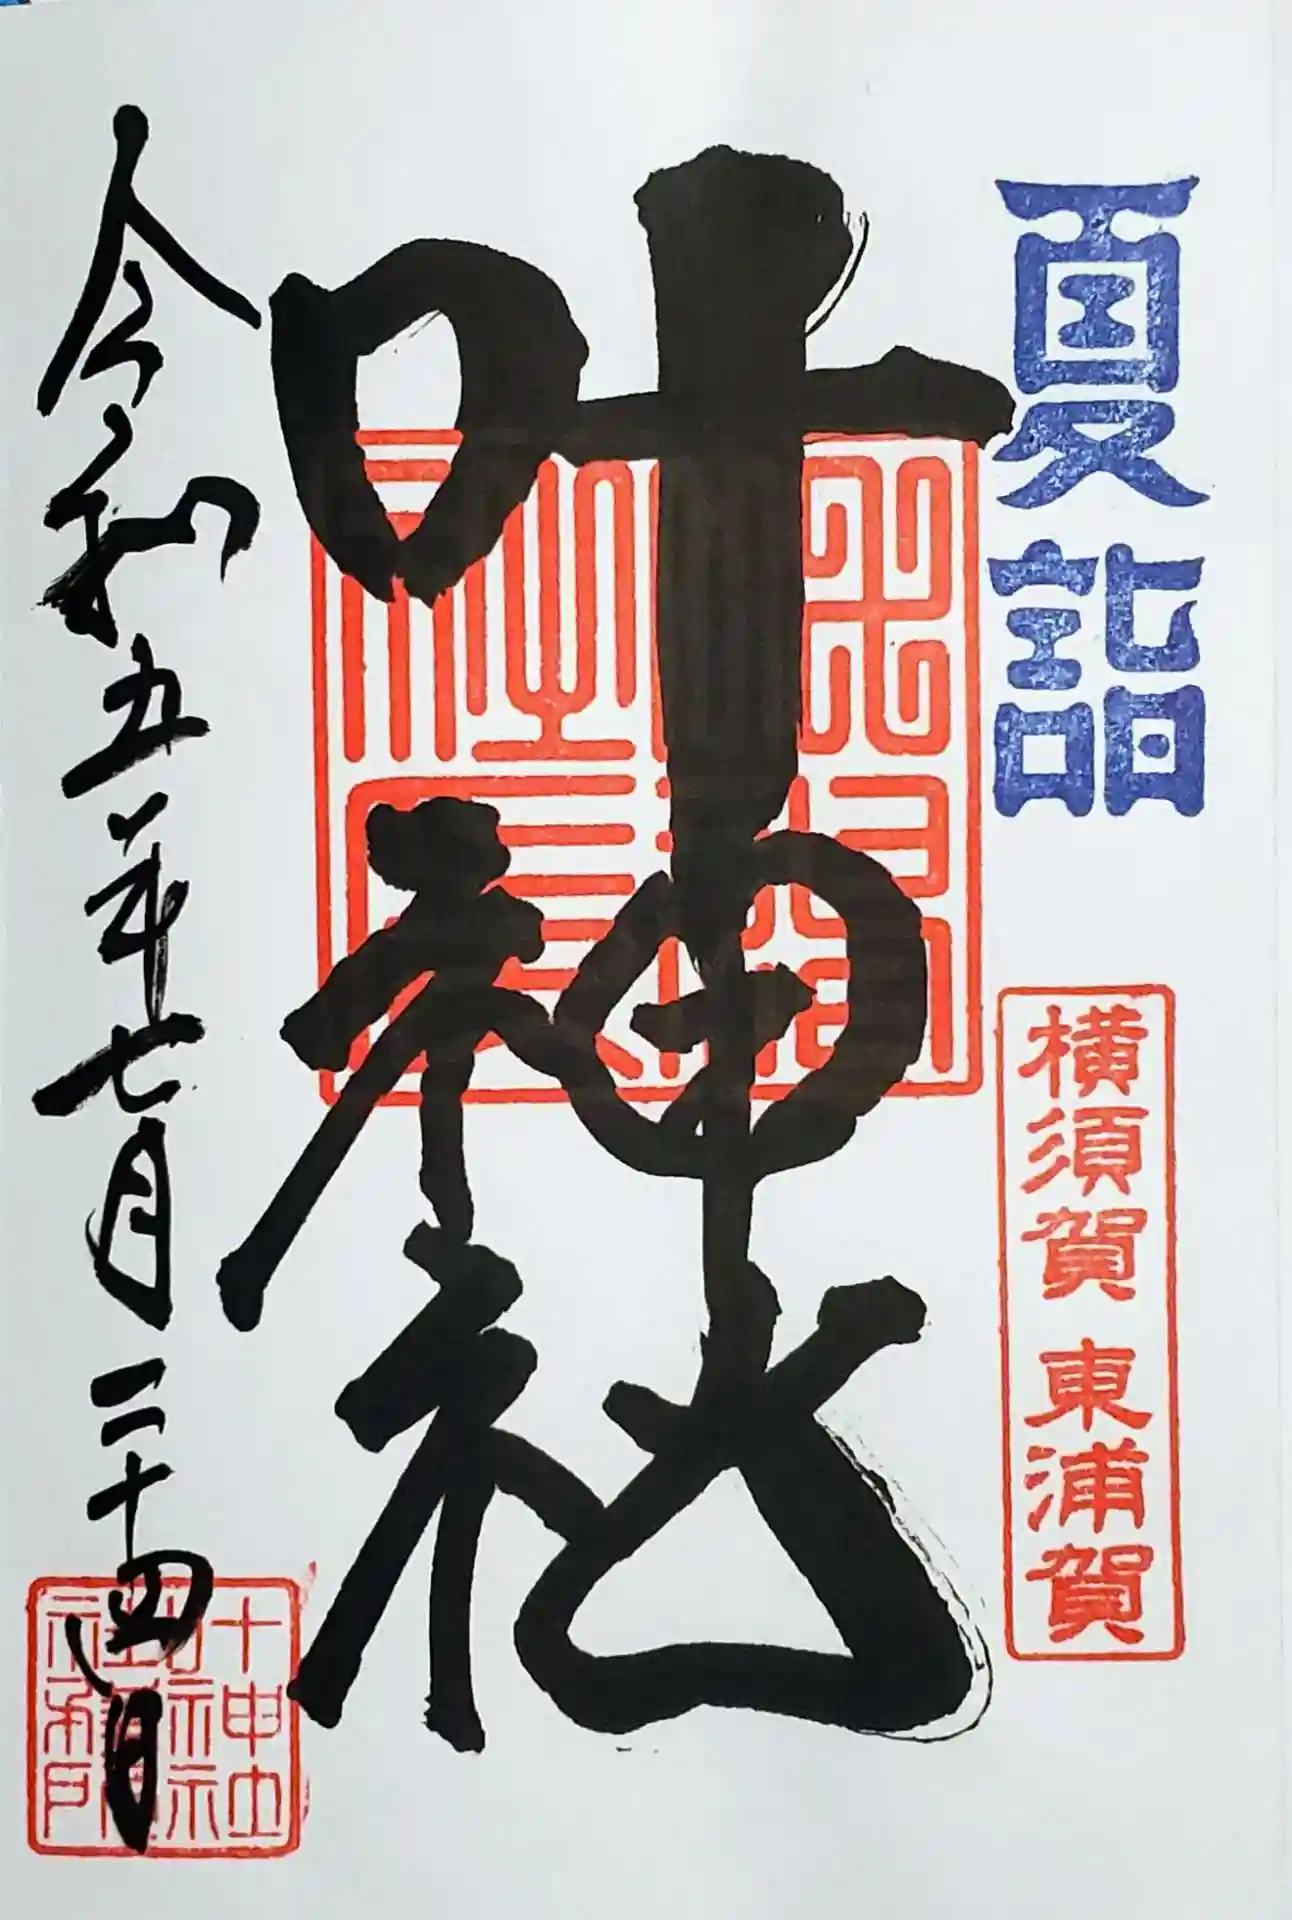 夏詣
横須賀 東浦賀
叶神社
令和五年七月二十四日
叶神社